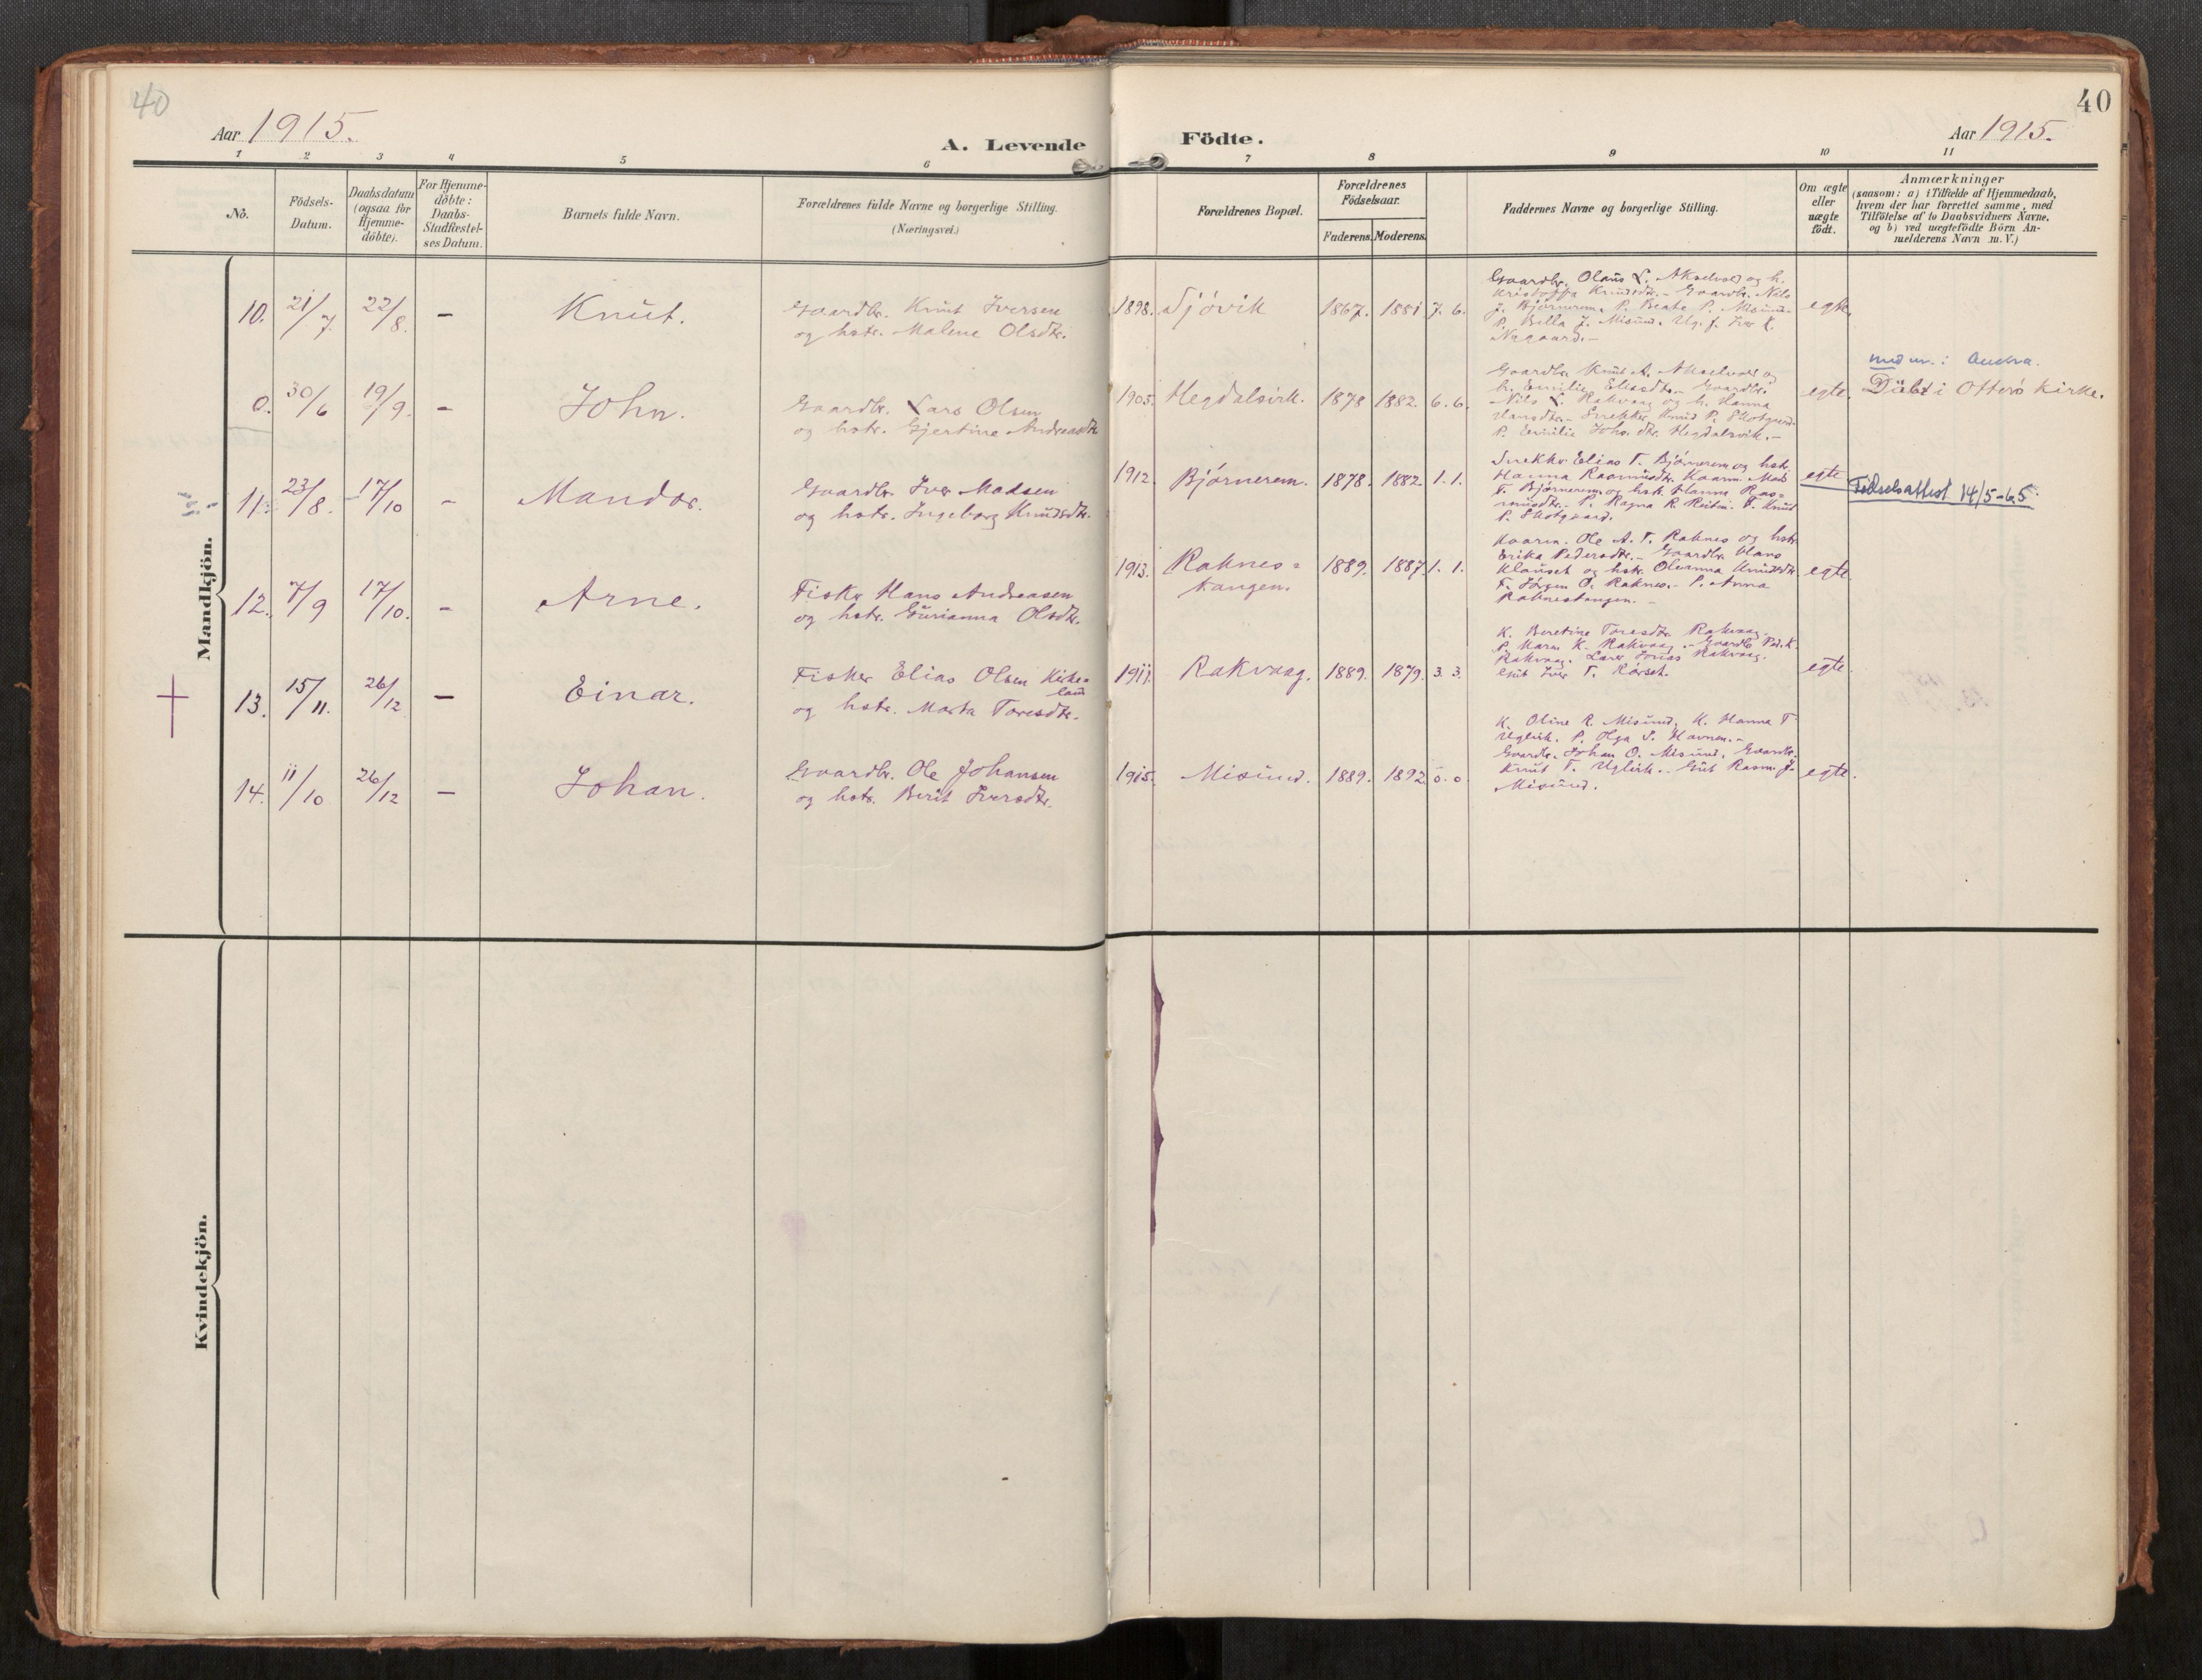 40
40
Aar 1915.
A. Levende
Födte.
Aar 1915.
1 2 3 4 5 6 7 8 9 10 11
No.
Födsels-
Datum.
Daabsdatum
(ogsaa for
Hjemme-
döbte).
For Hjemme-
döbte:
Daabs-
Stadfæstel-
ses Datum.
Barnets fulde Navn.
Forældrenes fulde Navne og borgerlige Stilling.
(Næringsvei.)
Forældrenes Bopæl.
Forældrenes
Födselsaar.
Faderens. Moderens.
Faddernes Navne og borgerlige Stilling.
Om ægte
eller
uægte
födt.
Anmærkninger
(saasom: a) i Tilfælde af Hjemmedaab,
hvem der har forrettet samme, med
Tilföielse af to Daabsvidners Navne,
og b) ved uægtefödte Börn An-
melderens Navn m. V.)
Mandkjön.
10. 21/7. 22/8. – Knut.
Gaardbr. Knut Iversen
og hstr. Malene Olsdtr.
1898. Sjövik 1867. 1881 7. 6.
Gaardbr. Olaus L. Akselvold og h.
Kristoffa Knudsdtr. – Gaardbr. Nils
J. Björnerem. P. Beate P. Misund.
P. Bella J. Misund. Ug. f. Iver K.
Nygaard. –
egte.
0. 30/6 19/9. – John.
Gaardbr. Lars Olsen
og hstr. Gjertine Andreasdtr.
1905. Hegdalsvik. 1878 1882. 6. 6.
Gaardbr. Knut A. Akselvold og
h. Emilie Eliasdtr. – Gaardbr.
Nils L. Rakvaag og h. Hanna
Hansdtr. – Snekker Knud P. Skotgaard.
P. Emilie Johs. dtr. Hegdalsvik. –
egte.
Aucra.
Döbt i Otterö Kirke.
11. 23/8. 17/10 – Mandor.
Gaardbr. Iver Madsen
og hstr. Ingeborg Knudsdtr.
1912. Björnerem. 1878. 1882. 1. 1.
Snekker Elias T. Björnerem og hstr.
Hanna Rasmusdtr. Kaarm. Mads
T. Björnerem og hstr. Hanna Ras-
musdtr. – P. Ragna R. Reiten. F. Knud
P. Skotgaard.
egte
Födselsattest 14/5-65.
12. 7/9 17/10. – Arne.
Fisker Hans Andreasen
og hstr. Gurianna Olsdtr.
1913. Raknes=
tangen.
1889. 1887. 1. 1.
Kaarm. Ole A. T. Raknes og hstr.
Erika Pedersdtr. – Gaardbr. Hans
Klauset og hstr. Oleanna Knudsdtr.
F. Jörgen O. Raknes. – P. Anna
Raknestangen. –
egte.
13. 15/11. 26/12 – Einar.
Fisker Elias Olsen Kirke=
land
og hstr. Marta Toresdtr.
1911. Rakvaag. 1889. 1879. 3. 3.
K. Beretine Toresdtr. Rakvaag.
P. Maren K. Rakvaag. – Gaardbr. Ped. K.
Rakvaag. Lars Jonas Rakvaag.
Gut Iver T. Rörset.
egte.
14. 11/10 26/12 – Johan.
Gaardbr. Ole Johansen
og hstr. Berit Iversdtr.
1915. Misund. 1889. 1892. 0. 0.
K. Oline R. Misund, K. Hanna T.
Uglvik. P. Olga S. Havnen. –
Gaardbr. Johan O. Misund, Gaardbr.
Knut T. Uglvik. – Gut Rasm. J.
Misund.
egte.
Kvindekjön.